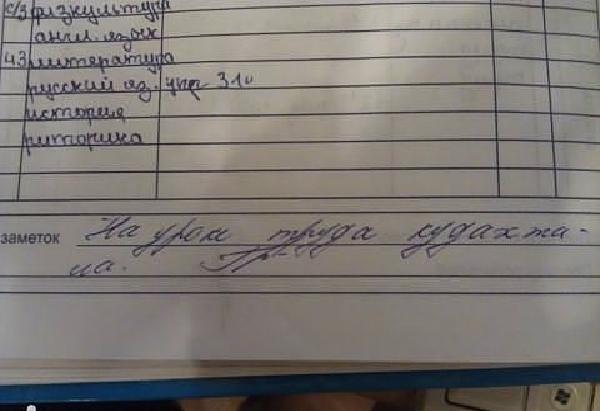 с/з физкультура
англ. язык
43 литература
русский яз. упр 310
история
риторика
заметок На урок труда кудахта-
ла.